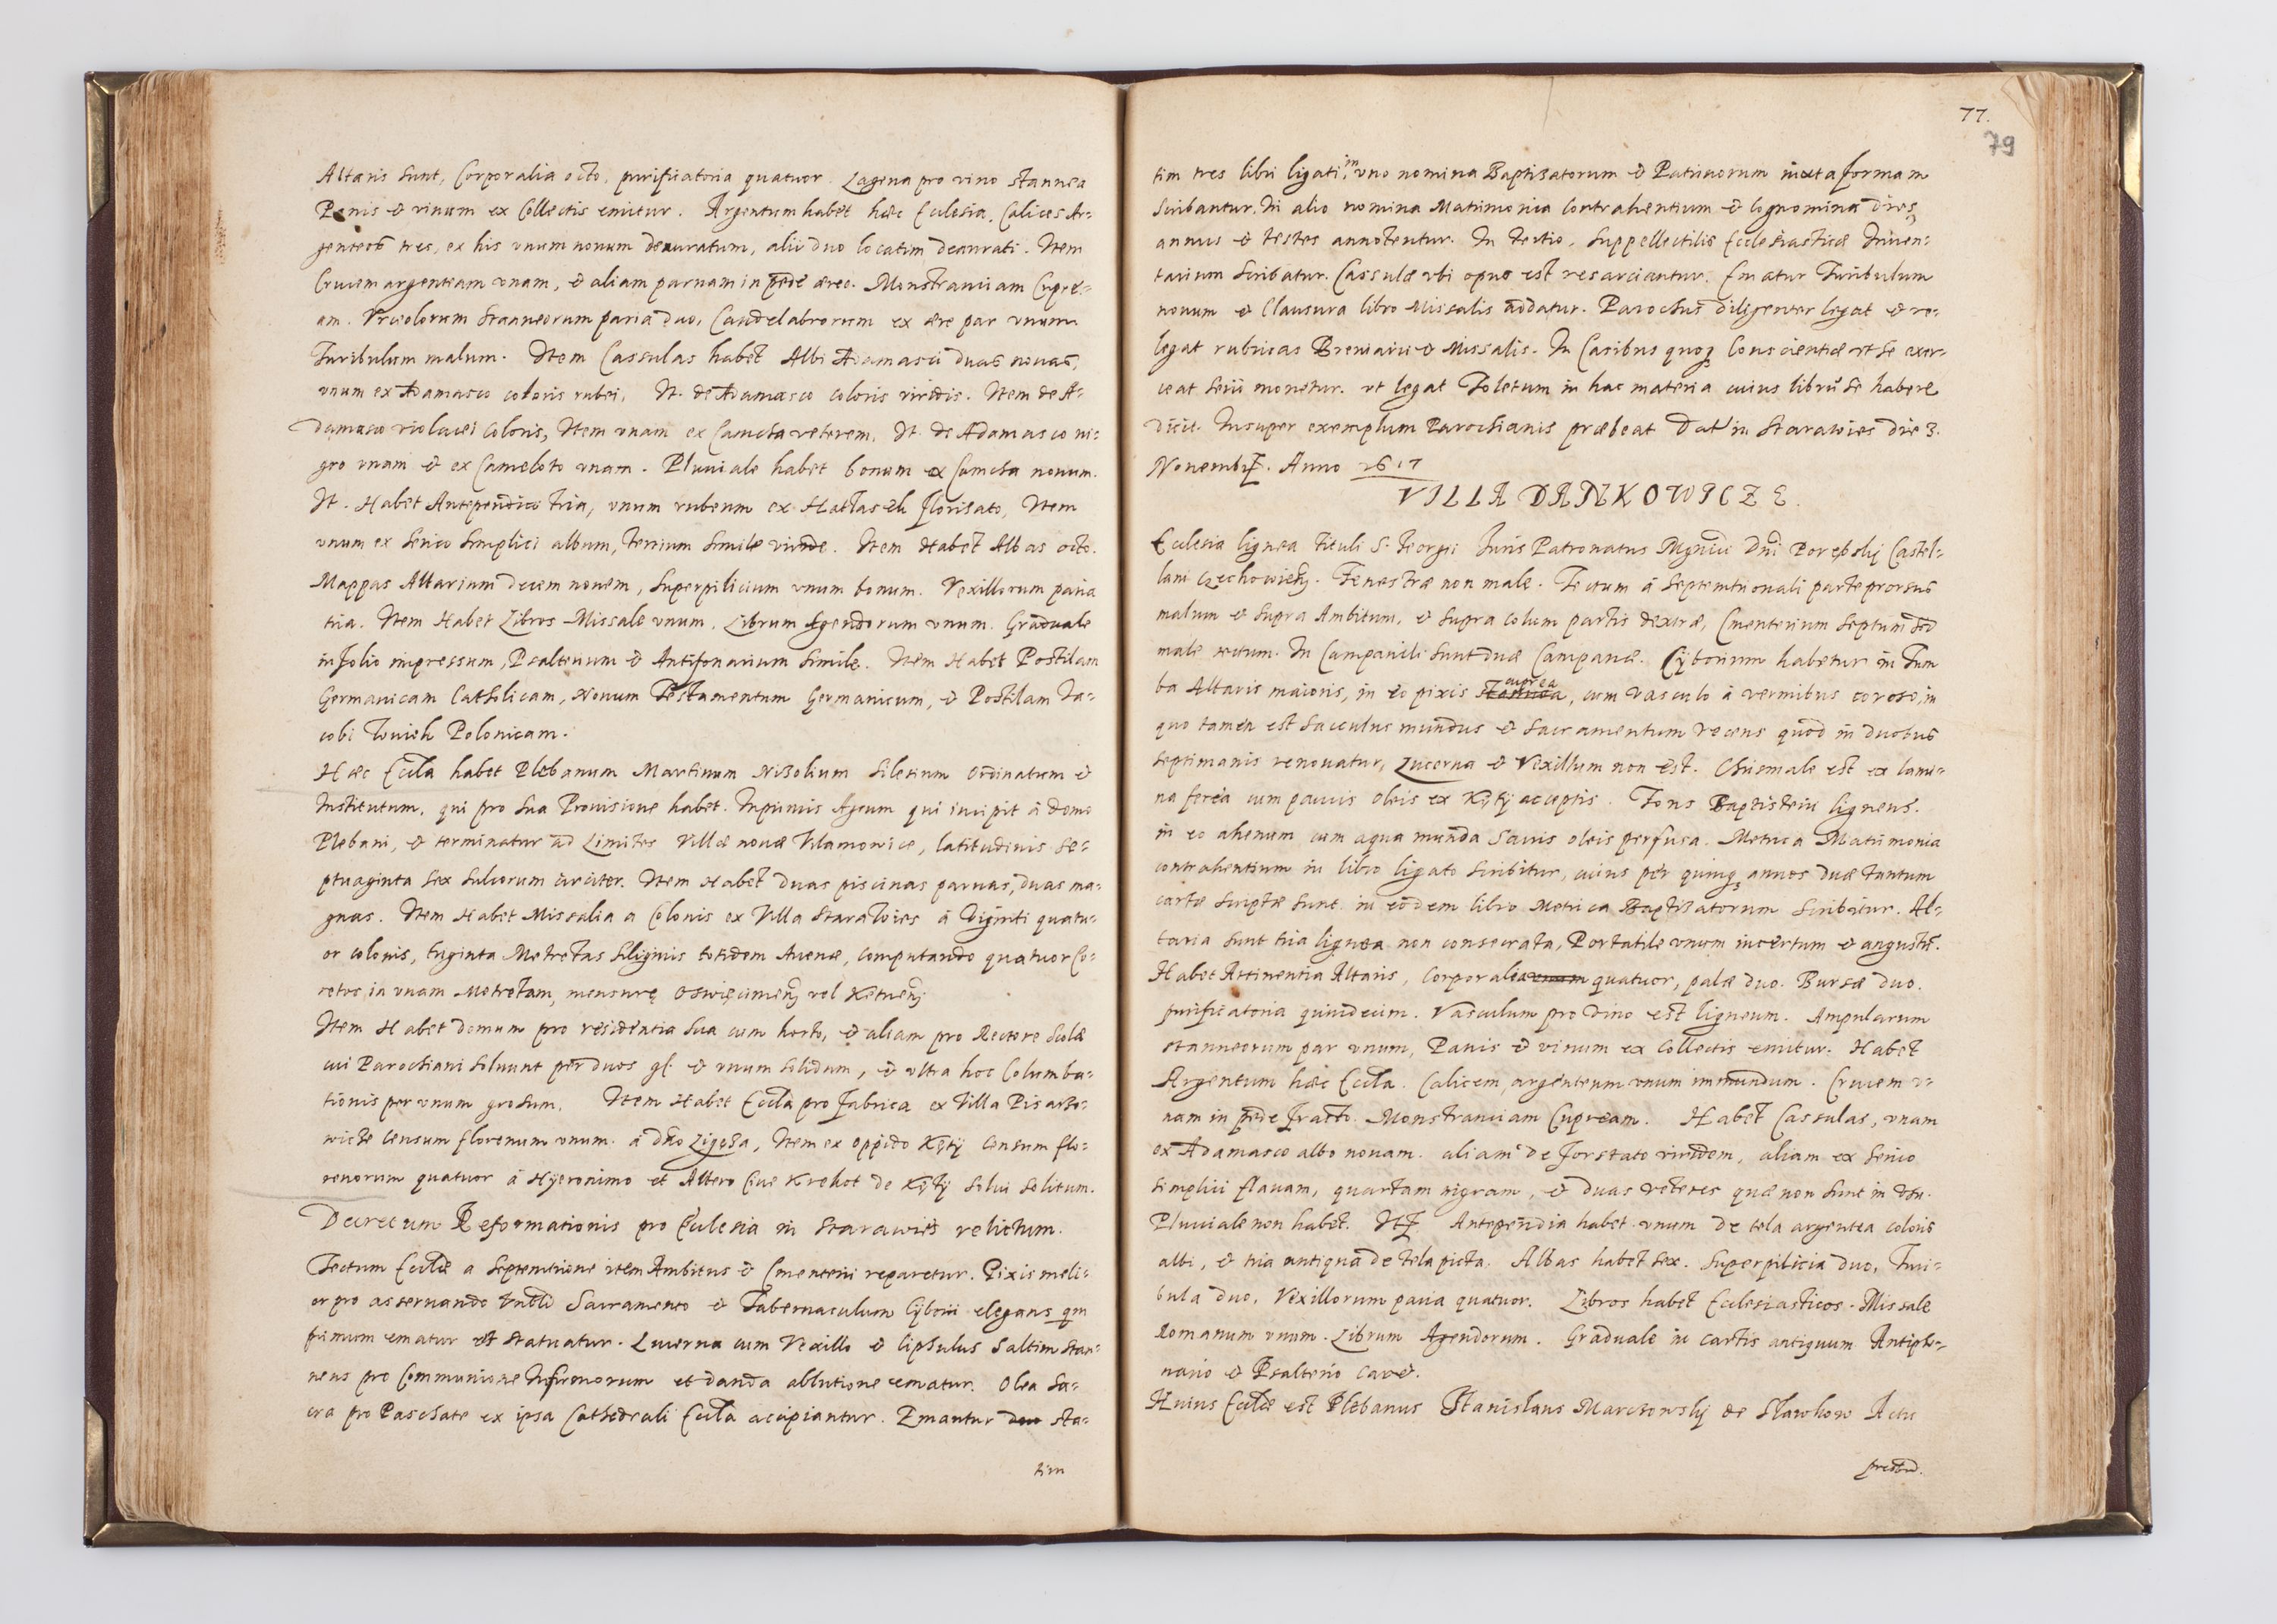 Altaris sunt, Corporalia octo, purificatoria quatuor. Lagena pro vino stannea
Panis & vinum ex Collectis emitur. Argentum habet hæc Ecclesia. Calices Ar-
genteos tres, ex his vnum nouum deauratum, alii duo locatim deaurati. Item
Crucem argenteam vnam, & aliam paruam in pede æreo. Monstranciam Cupre-
am. Vrceolorum stanneorum paria duo, Candelabrorum ex ære par vnum
Turibulum malum. Item Cassulas habet Albi Adamasci duas nouas,
vnum ex Adamasco coloris rubei, It. de Adamasco coloris viridis. Item de A-
damasco violacei coloris, Item vnam ex Camcha veterem, It. de Adamasco ni-
gro vnam & ex Cameloto vnam. Pluuiale habet bonum ex Camcha nouum.
It. Habet Antependia tria, vnum rubeum ex Hatlasch florisato, Item
vnum ex serico simplici album, tertium simile viride. Item Habet Albas octo.
Mappas Altarium decem nouem, superpilicium vnum bonum. Vexillorum paria
tria. Item Habet Libros Missale vnum, Librum Agendorum vnum. Graduale
in folio impressum, Psalterium & Antifonarium simile. Item Habet Postilam
Germanicam Catholicam, Nouum Testamentum Germanicum, & Postilam Ja-
cobi Wuiek Polonicam.
Hæc Eccla habet Plebanum Martinum Nizolium silesium ordinatum &
Institutum, qui pro sua Prouisione habet. Inprimis Agrum qui incipit à domo
Plebani, & terminatur ad Limites Villæ nouæ Vilamowice, latitudinis se-
ptuaginta sex sulcorum circiter. Item Habet duas piscinas paruas, duas ma-
gnas. Item Habet Missalia a Colonis ex Villa Starawies à viginti quatu-
or colonis, triginta Metretas siliginis totidem Auenæ, computando quatuor Co-
retos in vnam Metretam, mensure Oswięcimens vel Ketuens
Item Habet domum pro residentia sua cum horto, & aliam pro Rectore scolæ
cui Parochiani soluunt per duos gl. & vnum solidum, & vltra hoc Columba-
tionis per vnum grosum. Item Habet Eccla pro fabrica ex Villa Pisarzo-
wicze censum florenum vnum à dno Ligęza, Item ex oppido Kęty censum flo-
renorum quatuor à Hyeronimo et Altero Ciue Krehot de Kęty solui solitum.
Decretum Reformationis pro Ecclesia in Starawies relictum.
Tectum Ecclæ a septemtrione item Ambitus & Cmenterii reparetur. Pixis meli-
or pro asseruando Vnbli Sacramento & Tabernaculum Cyborii elegans qm
primum ematur et statuatur. Lucerna cum Vexillo & ciphulus saltim stan-
neus pro Communione Infirmorum et danda ablutione ematur. Olea sa-
cra pro Paschate ex ipsa Cathedrali Eccla accipiantur. Emantur duo sta-
tim
77.
79
tim tres libri ligati, in vno nomina Baptisatorum & Patrinorum iuxta formam
scribantur, In alio nomina Matrimonia contrahentium & cognomina dies,
annus & testes annotentur. In tertio, suppellectilis Ecclesiasticæ Inuen-
tarium scribatur. Cassulæ vbi opus est resarciantur. Ematur Turibulum
nouum & Clausura libro Missalis addatur. Parochus diligenter legat & re-
legat rubricas Breuiarii & Missalis. In Casibus quoq conscientiæ vt se exer-
ceat serii monetur. vt legat Toletum in hac materia cuius librũ se habere
dicit. Insuper exemplum Parochianis præbeat Dat in Starawies die 3.
Nouembr. Anno 1617
VILLA DANKOWICZE.
Ecclesia lignea tituli S. Georgii Juris Patronatus Mgnici Dni Porębsky Castel-
lani Czechowiens. Fenestræ non male. Tectum à septemtrionali parte prorsus
malum & supra Ambitum, & supra colum partis dextræ, Cmenterium septum sed
male tectum. In Campanili sunt duæ Campanæ. Cyborium habetur in Tum
ba Altaris maioris, in eo pixis stannea cuprea, cum vasculo à vermibus coroso, in
quo tamen est sacculus mundus & sacramentum recens quod in duobus
septimanis renouatur, Lucerna & Vexillum non est. Chrismale est ex lami-
na ferea cum paruis oleis ex Kęty acceptis. Fons Baptisterii ligneus.
in eo ahenum cum aqua munda sacris oleis perfusa. Metrica Matrimonia
contrahentium in libro ligato scribitur, cuius per quinq annos duæ tantum
cartæ scriptæ sunt. in eodem libro Metrica Baptizatorum scribitur. Al-
taria sunt tria lignea non consecrata, Portatile vnum incertum & angustũ.
Habet Attinentia Altaris, Corporalia vnum quatuor, palæ duo. Bursæ duo.
purificatoria quindecim. Vasculum pro vino est ligneum. Ampularum
stanneorum par vnum, Panis & vinum ex Collectis emitur. Habet
Argentum hæc Eccla. Calicem argenteum vnum immundum. Crucem v-
nam in pede fracto. Monstranciam Cupream. Habet Cassulas, vnam
ex Adamasco albo nouam. aliam de forstato viridem, aliam ex serico
simplici flauam, quartam nigram, & duas veteres quæ non sunt in vsu.
Pluuiale non habet. It. Antependia habet vnum de tela argentea coloris
albi, & tria antiqua de tela picta. Albas habet sex. Superpilicia duo, Turi-
bula duo, Vexillorum paria quatuor. Libros habet Ecclesiasticos. Missale
Romanum vnum. Librum Agendorum. Graduale in cartis antiquum Antipho-
nario & Psalterio caret.
Huius Ecclæ est Plebanus Stanislaus Marczowsky de Slawkow Actu
presbr.